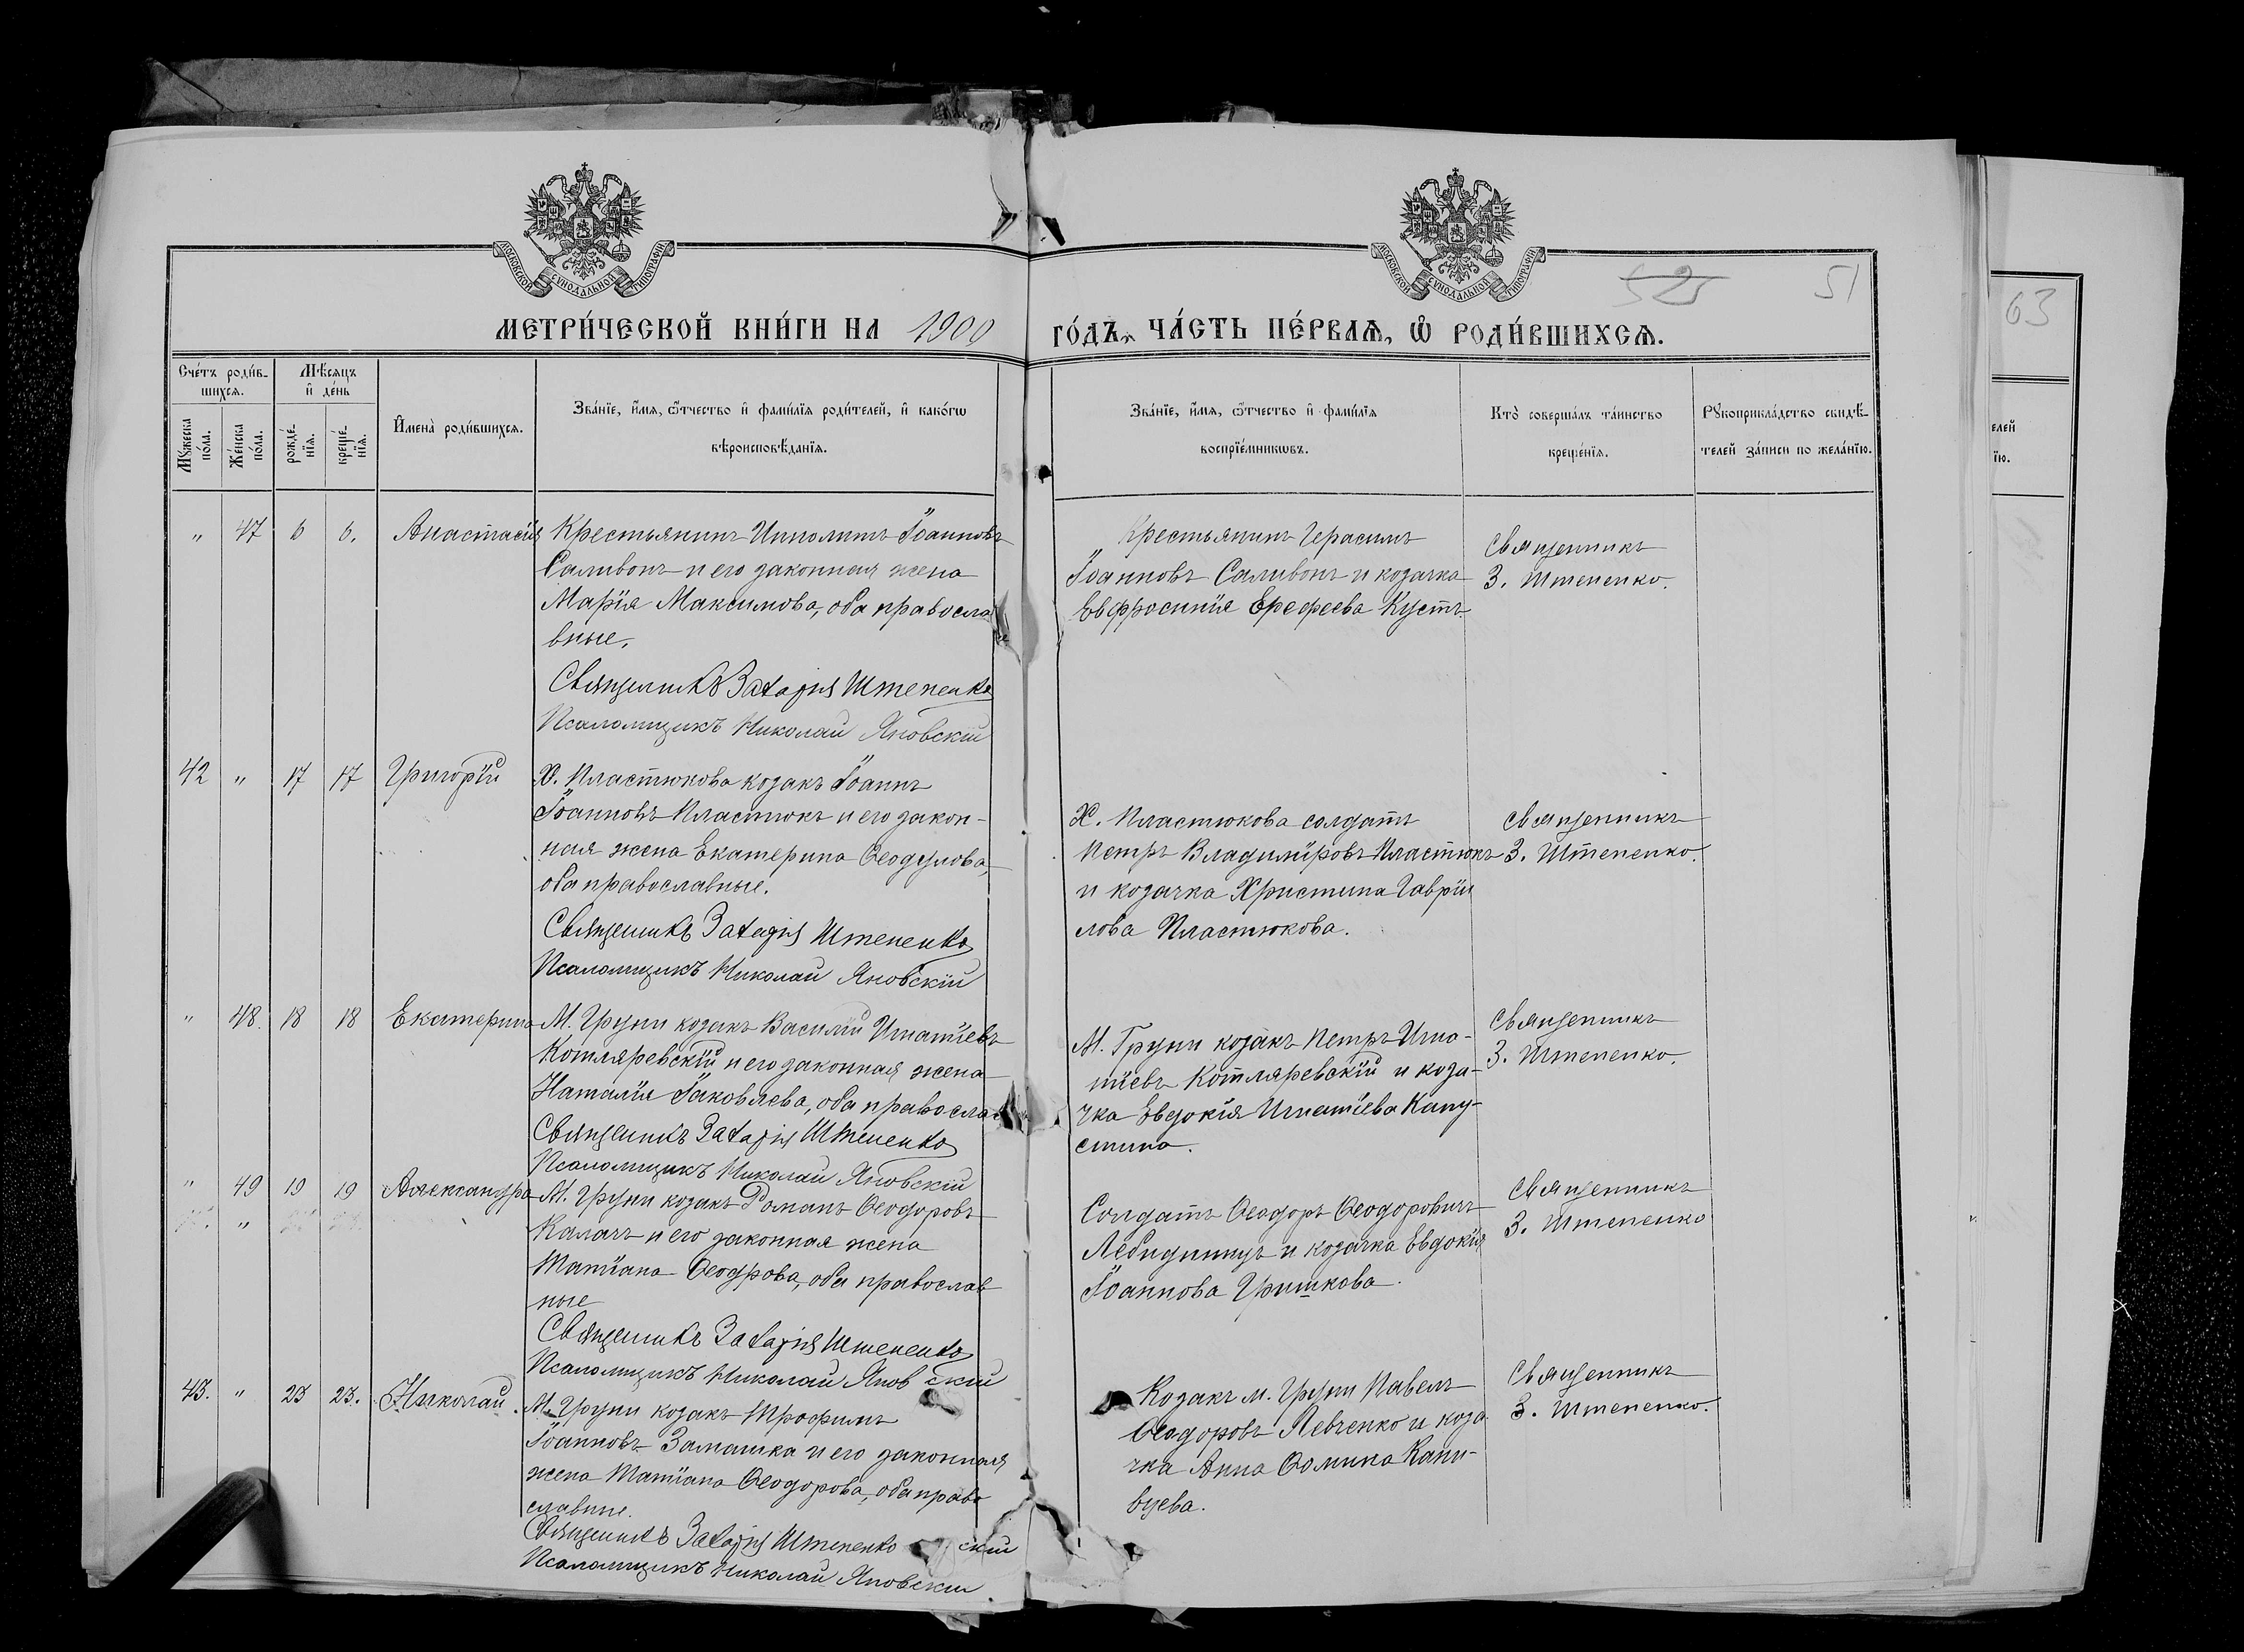 МОСКОВСКОЙ СѴНОДАЛЬНОЙ ТИПОГРАФІИ
МОСКОВСКОЙ СѴНОДАЛЬНОЙ ТИПОГРАФІИ
52
51
63
МЕТРИ́ЧЕСКОЙ КНИ́ГИ НА 1900 ГО́ДЪ, ЧА́СТЬ ПЕ́РВАѦ, Ѡ҆ РОДИ́ВШИХСѦ.
Сче́тъ роди́в-
шихсѧ.
Мѣ́сѧцъ
и҆ де́нь
Мꙋ́жеска
по́ла.
Же́нска
по́ла.
рожде́-
нїѧ.
креще́-
нїѧ.
И҆мена̀ роди́вшихсѧ.
Зва́нїе, и҆́мѧ, ѻ҆́тчество и҆ фами́лїѧ роди́телей, и҆ како́гѡ
вѣроисповѣ́данїѧ.
Зва́нїе, и҆́мѧ, ѻ҆́тчество и҆ фами́лїѧ
воспрїе́мникѡвъ.
Кто̀ соверша́лъ та́инство
креще́нїѧ.
Рꙋкоприкла́дство свидѣ́-
телей за́писи по жела́нїю.
елей
їю.
" 47 6 6. Анастасія
Крестьянинъ Ипполитъ Іоанновъ
Саливонъ и его законная жена
Марія Максимова, оба правосла
вные.
Священникъ Захарія Штепенко
Псаломщикъ Николай Яновскій
Крестьянинъ Герасимъ
Іоанновъ Саливонъ и козачка
Евфросинія Ерофеева Кустъ.
Священникъ
З. Штепенко.
42 " 17 17 Григорій
Х. Пластюкова козакъ Іоаннъ
Іоанновъ Пластюкъ и его закон-
ная жена Екатерина Ѳеодулова,
оба православные.
Священникъ Захарія Штепенко
Псаломщикъ Николай Яновскій
Х. Пластюкова солдатъ
Петръ Владиміровъ Пластюкъ
и козачка Христина Гаврiи
лова Пластюкова.
Священникъ
З. Штепенко.
" 48. 18 18 Екатерина
М. Груни козакъ Василій Игнатіевъ
Котляревскій и его законная жена
Наталія Іаковлева, оба правосла
Священникъ Захарія Штепенко
Псаломщикъ Николай Яновскій
М. Груни козакъ Петръ Игна-
тіевъ Котляревскій и коза-
чка Евдокія Игнатіева Капу-
стина.
Священникъ
З. Штепенко.
" 49 19 19 Александра
М. Груни козакъ Романъ Ѳеодоровъ
Калачъ и его законная жена
Татіана Ѳеодрова, оба православ
ные
Священникъ Захарія Штепенко
Псаломщикъ Николай Яновскій
Солдатъ Ѳеодоръ Ѳеодоровичъ
и козачка Евдокія
Іоаннова Гришкова.
Священникъ
З. Штепенко
43. " 23 23. Николай.
М. Груни козакъ Трофимъ
Іоанновъ Замашка и его законная
жена Татіана Ѳеодорова, оба право
славные.
Священникъ Захарія Штепенко
Псаломщикъ Николай Яновскій
Козакъ м. Груни Павелъ
Ѳеодоровъ Левченко и коза
чка Анна Ѳомина Капи-
вуева.
Священникъ
З. Штепенко.